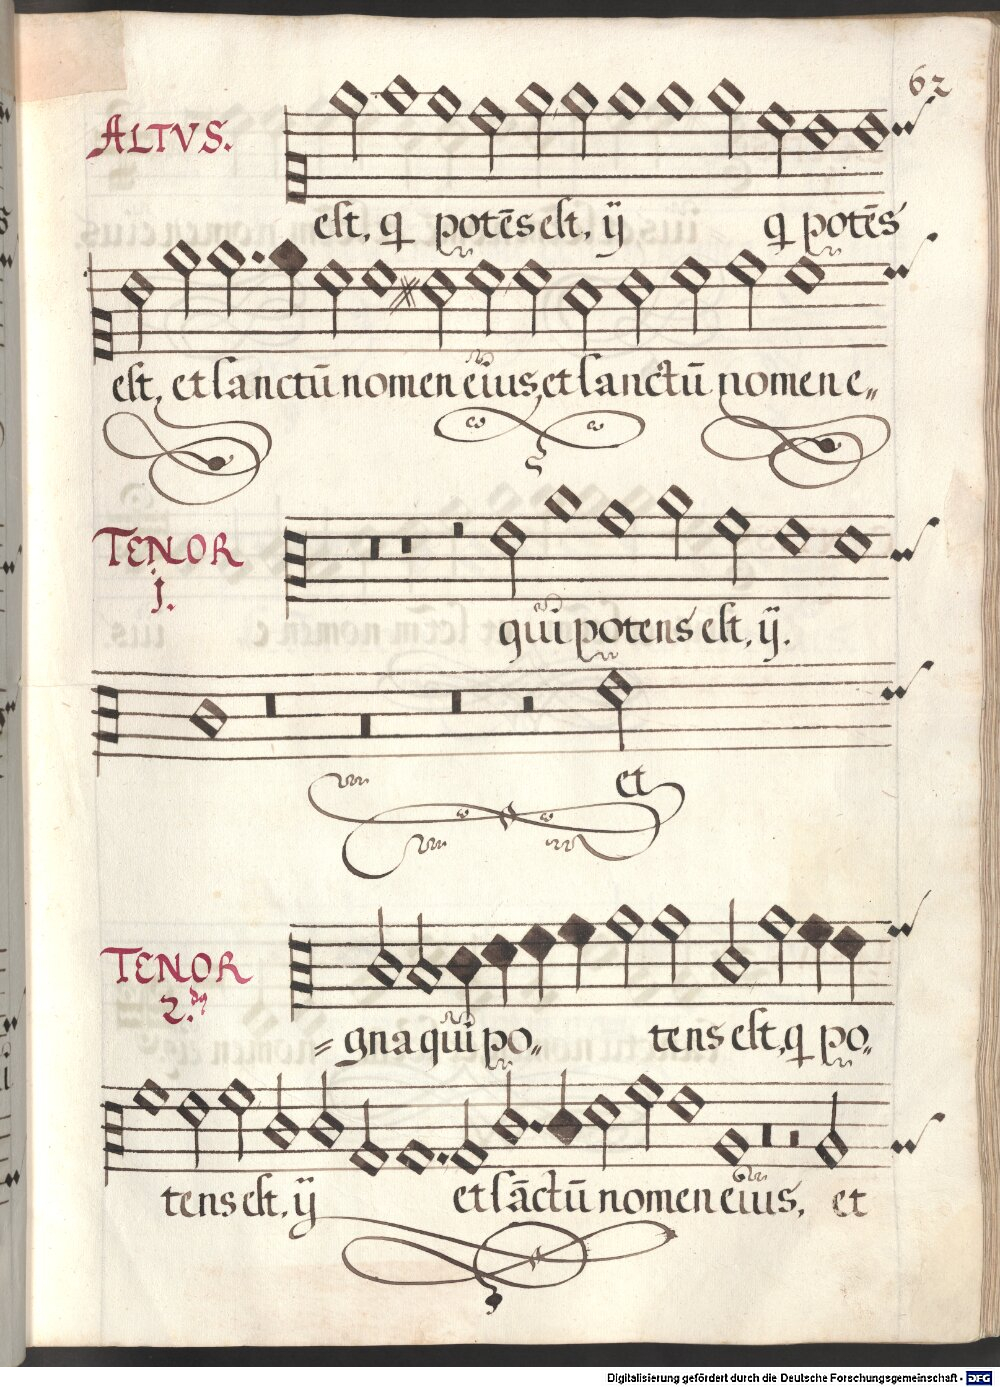 62
ALTVS.
est, q potēs est, ij q potēs
est, et sanctū nomen eius, et sanctū nomen e〃
TENOR
j.
qui potens est, ij.
et
TENOR
2.us
〃gna qui po〃 tens est, q po〃
tens est, ij et sāctū nomen eius, et
Digitalisierung gefördert durch die Deutsche Forschungsgemeinschaft - DFG